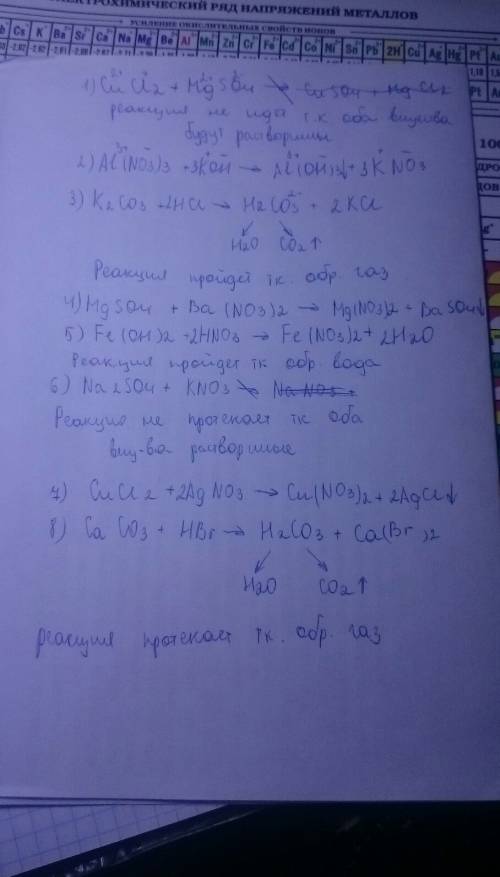 ЭЛЕКТРОХИМИЧЕСКИЙ РЯД НАПРЯЖЕНИЙ МЕТАЛЛОВ
УСИЛЕНИЕ ОКИСЛИТЕЛЬНЫХ СВОЙСТВ ИОНОВ
Cs K⁺ Ba²⁺ Sr²⁺ Ca²⁺ Na⁺ Mg Be Al Mn Zn Cr Fe Cd Co Ni Sn Pb 2H⁺ Cu Ag Hg Pt Au
1) CuCl2 + MgSO4 ↛ CuSO4 + MgCl2
реакция не идёт т.к оба вещ-ва
будут растворимы
2) Al(NO3)3 +3KOH → Al(OH)3↓ + 3KNO3
3) K2CO3 +2HCl → H2CO3 + 2KCl
H2O CO2↑
Реакция пройдет т.к. обр. газ
4) MgSO4 + Ba(NO3)2 → Mg(NO3)2 + BaSO4↓
5) Fe(OH)2 +2HNO3 → Fe(NO3)2 + 2H2O
Реакция пройдет тк обр. вода
6) Na2SO4 + KNO3 ↛ NaNO3 +
Реакция не протекает тк оба
вещ-ва растворимые
7) CuCl2 +2AgNO3 → Cu(NO3)2 + 2AgCl↓
8) CaCO3 + HBr → H2CO3 + Ca(Br)2
H2O CO2↑
реакция протекает тк. обр. газ